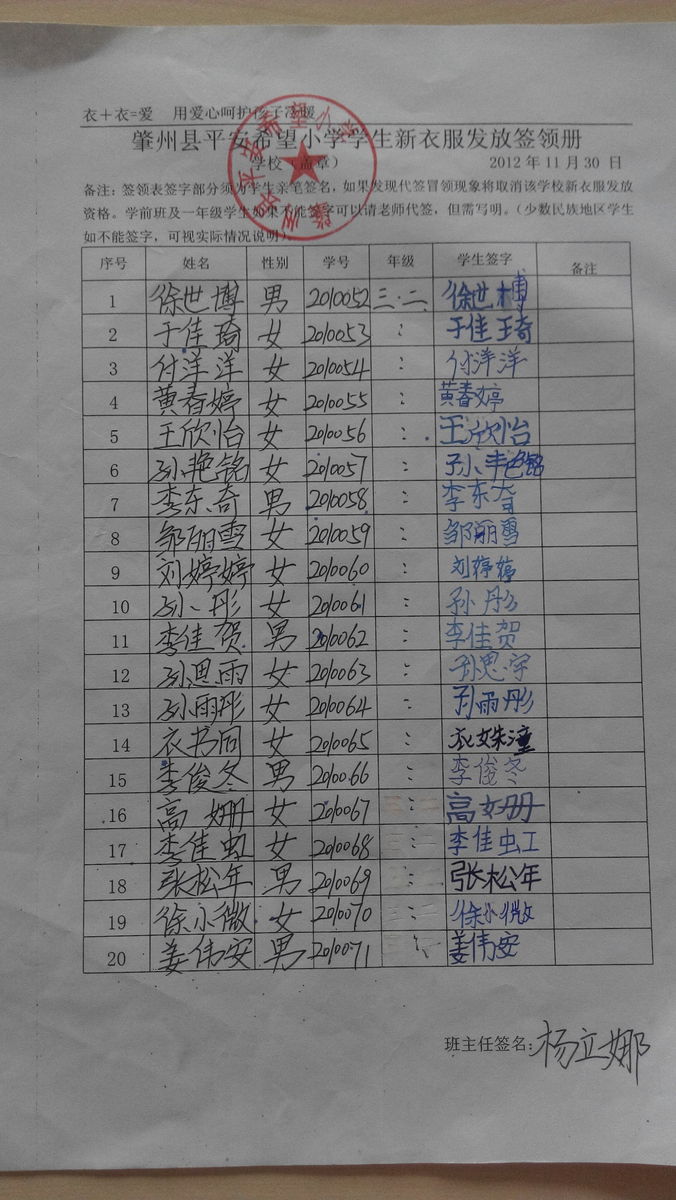 衣＋衣=爱 用爱心呵护孩子冷暖
肇州县平安希望小学学生新衣服发放签领册
学校（盖章） 2012 年 11 月 30 日
备注：签领表签字部分须为学生亲笔签名，如果发现代签冒领现象将取消该学校新衣服发放
资格。学前班及一年级学生如果不能签字可以请老师代签，但需写明。（少数民族地区学生
如不能签字，可视实际情况说明）。
序号 姓名 性别 学号 年级 学生签字 备注
1 徐世博 男 2010052 三.二 徐世博
2 于佳琦 女 2010053 : 于佳琦
3 付洋洋 女 2010054 : 付洋洋
4 黄春婷 女 2010055 : 黄春婷
5 王欣怡 女 2010056 : 王欣怡
6 孙艳铭 女 2010057 : 孙艳铭
7 李东奇 男 2010058 : 李东奇
8 邹丽雪 女 2010059 : 邹丽雪
9 刘婷婷 女 2010060 : 刘婷婷
10 孙彤 女 2010061 : 孙彤
11 李佳贺 男 2010062 : 李佳贺
12 孙思雨 女 2010063 : 孙思宇
13 孙雨彤 女 2010064 : 孙雨彤
14 衣书同 女 2010065 : 衣姝潼
15 李俊冬 男 2010066 : 李俊冬
16 高姗 女 2010067 : 高姗
17 李佳虹 女 2010068 : 李佳虹
18 张松年 男 2010069 : 张松年
19 徐小微 女 2010070 : 徐小微
20 姜伟安 男 2010071 姜伟安
班主任签名：杨立娜